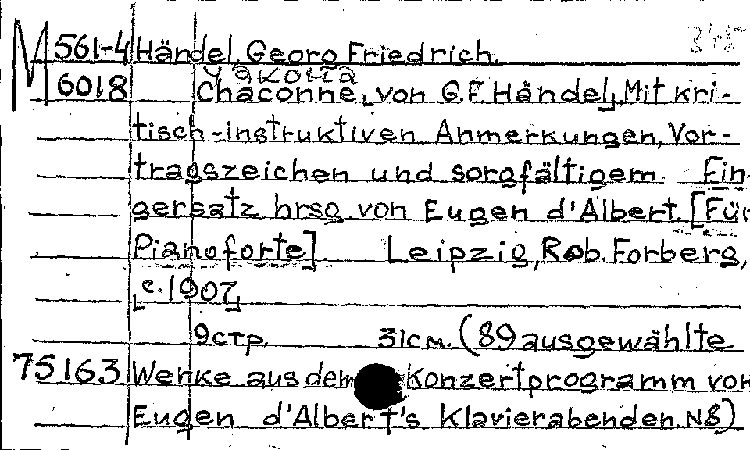 M 561-4 Händel, Georg Friedrich.
Чакона
6018 Chaconne, von G.F. Händel, Mit kri-
tisch-instruktiven Anmerkungen, Vor-
tragszeichen und sorgfältigem Fin-
gersatz hrsg. von Eugen d'Albert. [Für
Pianoforte] Leipzig, Rob. Forberg,
[c. 1907]
9 стр. 31 см. (89 ausgewählte
75163 Werke aus dem Konzertprogramm von
Eugen d'Albert's Klavierabenden. N 8)